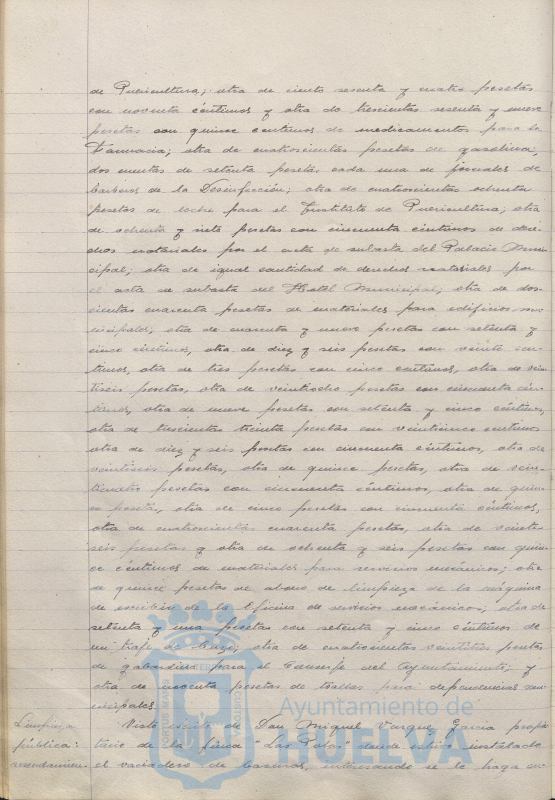 de Puericultura; otra de ciento sesenta y cuatro pesetas
con noventa céntimos y otra de trescientas sesenta y nueve
pesetas con quince centimos de medicamentos para la
Farmacia; otra de cuatrocientas pesetas de gasolina;
dos cuentas de setenta pesetas cada una de jornales de
barberos de la Desinfección; otra de cuatrocientas ochenta
pesetas de leche para el Instituto de Puericultura; otra
de ochenta y siete pesetas con cincuenta céntimos de dere-
chos notariales por el acta de subasta del Palacio Muni-
cipal; otra de igual cantidad de derechos notariales por
el acta de subasta del Hotel Municipal; otra de dos-
cientas cuarenta pesetas de materiales para edificios mu-
nicipales; otra de cuarenta y nueve pesetas con setenta y
cinco céntimos, otra de diez y seis pesetas con veinte cén-
timos, otra de tres pesetas con cinco céntimos, otra de vein-
tiseis pesetas, otra de veintiocho pesetas con cincuenta cén-
timos, otra de nueve pesetas con setenta y cinco céntimos,
otra de trescientas treinta pesetas con veinticinco centimos
otra de diez y seis pesetas con cincuenta céntimos, otra de
veintiseis pesetas, otra de quince pesetas, otra de vein-
ticuatro pesetas con cincuenta céntimos, otra de quin-
ce pesetas, otra de cinco pesetas con cincuenta céntimos,
otra de cuatrocientas cuarenta pesetas, otra de veinti-
seis pesetas y otra de ochenta y seis pesetas con quin-
ce céntimos de materiales para servicios mecánicos; otra
de quince pesetas de abono de limpieza de la máquina
de escribir de la Oficina de servicios mecánicos; otra de
setenta y una pesetas con setenta y cinco céntimos de
un traje de buzo; otra de cuatrocientas veintitres pesetas
de gabardina para el Conserje del Ayuntamiento; y
otra de pesetas de toallas para dependencias mu-
nicipales.
Limpieza Visto escrito de Don Miguel Vazquez Garcia propie-
pública: tario de la finca "Las Tobas" donde está instalado
arrendamien- el vaciadero de basuras, interesando se le haga en-
Ayuntamiento de
HUELVA
PORTUS MARIS